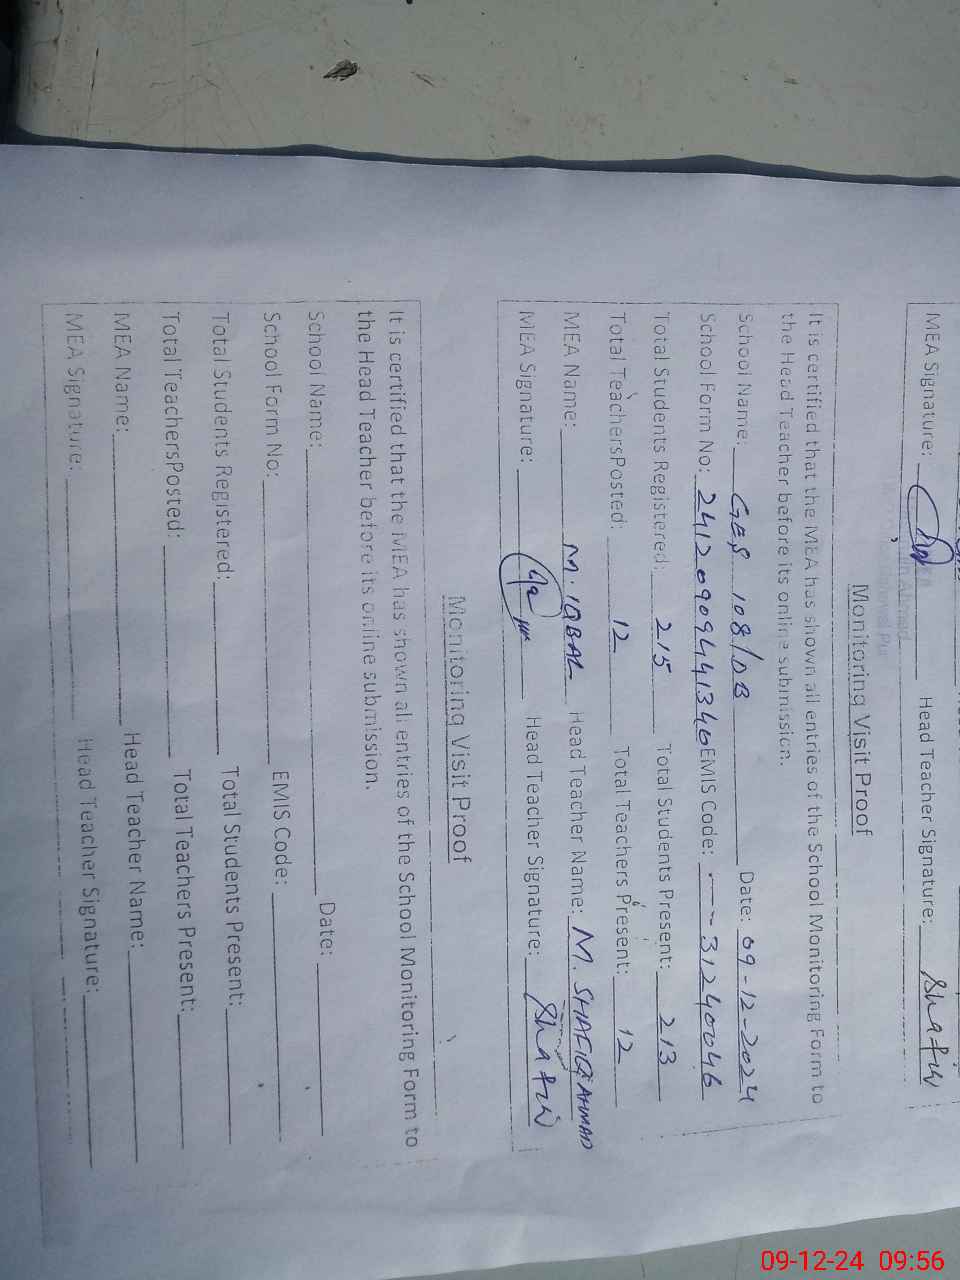 MEA Signature: Head Teacher Signature: Shafiq
Monitoring Visit Proof
It is certified that the MEA has shown all entries of the School Monitoring Form to
the Head Teacher before its online submission.
School Name: GES 108/DB Date: 09-12-2024
School Form No: 24120909441346 EMIS Code: ---31240046
Total Students Registered: 215 Total Students Present: 213
Total TeachersPosted: 12 Total Teachers Present: 12
MEA Name: M. IQBAL Head Teacher Name: M. SHAFIQ AHMAD
MEA Signature: Head Teacher Signature: Shafiq
Monitoring Visit Proof
It is certified that the MEA has shown all entries of the School Monitoring Form to
the Head Teacher before its online submission.
School Name: Date:
School Form No: EMIS Code:
Total Students Registered: Total Students Present:
Total TeachersPosted: Total Teachers Present:
MEA Name: Head Teacher Name:
MEA Signature: Head Teacher Signature:
09-12-24 09:56